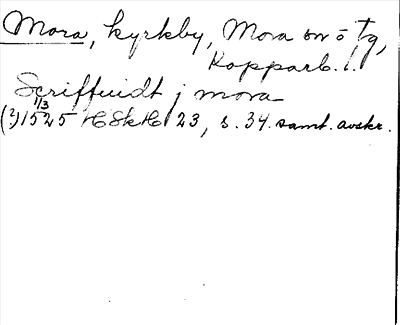 Mora, kyrkby, Mora sn o tg,
Kopparb. l.
Scriffuidt j mora
(?) 1/3 1525 HSkH 23, s. 34. samt. avskr.